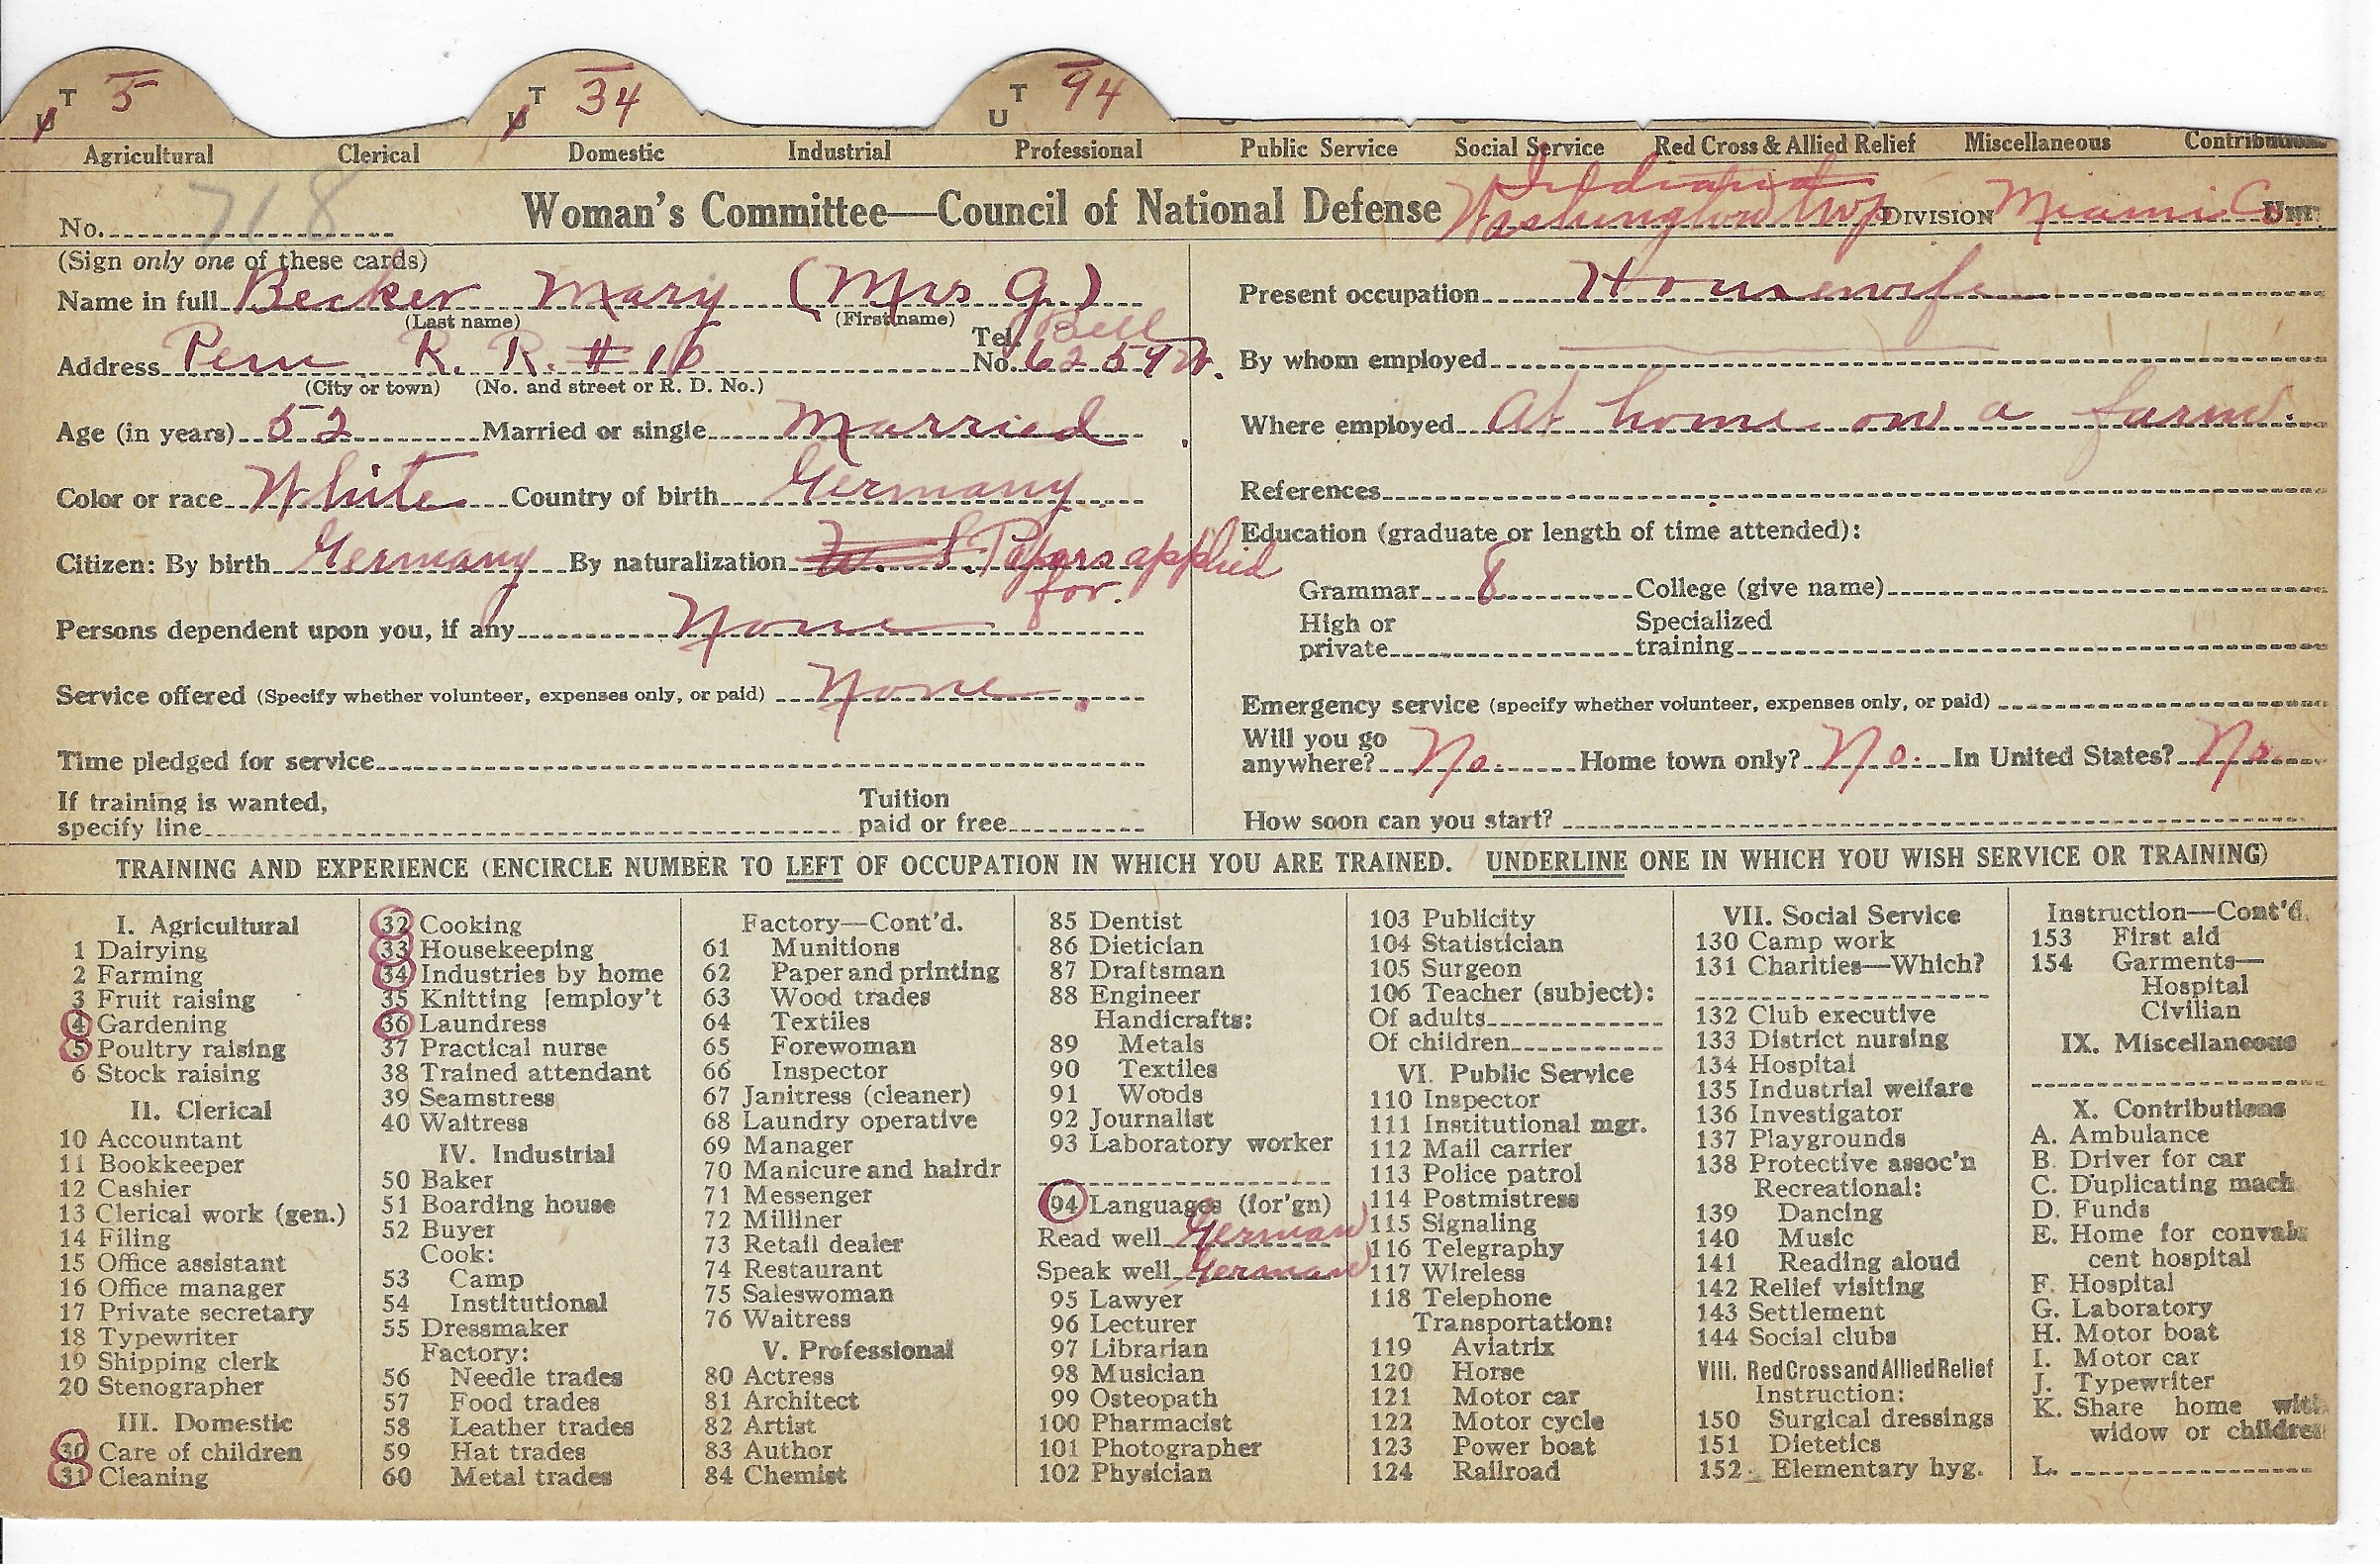 T 5 T 34 T 94
U U U
Agricultural Clerical Domestic Industrial Professional Public Service Social Service Red Cross & Allied Relief Miscellaneous Contributions
Indiana
No. 718 Woman's Committee—Council of National Defense Washington Twp DIVISION Miami Co. UNIT
(Sign only one of these cards)
Name in full Becker Mary (Mrs G.)
(Last name) (First name)
Address Peru R. R. # 10 Tel. No. Bell 6254W.
(City or town) (No. and street or R. D. No.)
Age (in years) 52 Married or single Married
Color or race White Country of birth Germany
Citizen: By birth Germany By naturalization Papers applied for.
Persons dependent upon you, if any None
Service offered (Specify whether volunteer, expenses only, or paid) None
Time pledged for service
If training is wanted, specify line Tuition paid or free
Present occupation Housewife
By whom employed
Where employed At home on a farm.
References
Education (graduate or length of time attended):
Grammar 8 College (give name)
High or private Specialized training
Emergency service (specify whether volunteer, expenses only, or paid)
Will you go anywhere? No. Home town only? No. In United States? No.
How soon can you start?
TRAINING AND EXPERIENCE (ENCIRCLE NUMBER TO LEFT OF OCCUPATION IN WHICH YOU ARE TRAINED. UNDERLINE ONE IN WHICH YOU WISH SERVICE OR TRAINING)
I. Agricultural
1 Dairying
2 Farming
3 Fruit raising
4 Gardening
5 Poultry raising
6 Stock raising
II. Clerical
10 Accountant
11 Bookkeeper
12 Cashier
13 Clerical work (gen.)
14 Filing
15 Office assistant
16 Office manager
17 Private secretary
18 Typewriter
19 Shipping clerk
20 Stenographer
III. Domestic
30 Care of children
31 Cleaning
32 Cooking
33 Housekeeping
34 Industries by home
35 Knitting [employ't
36 Laundress
37 Practical nurse
38 Trained attendant
39 Seamstress
40 Waitress
IV. Industrial
50 Baker
51 Boarding house
52 Buyer
Cook:
53 Camp
54 Institutional
55 Dressmaker
Factory:
56 Needle trades
57 Food trades
58 Leather trades
59 Hat trades
60 Metal trades
Factory—Cont'd.
61 Munitions
62 Paper and printing
63 Wood trades
64 Textiles
65 Forewoman
66 Inspector
67 Janitress (cleaner)
68 Laundry operative
69 Manager
70 Manicure and hairdr
71 Messenger
72 Milliner
73 Retail dealer
74 Restaurant
75 Saleswoman
76 Waitress
V. Professional
80 Actress
81 Architect
82 Artist
83 Author
84 Chemist
85 Dentist
86 Dietician
87 Draftsman
88 Engineer
Handicrafts:
89 Metals
90 Textiles
91 Woods
92 Journalist
93 Laboratory worker
94 Languages (for'gn)
Read well German
Speak well German
95 Lawyer
96 Lecturer
97 Librarian
98 Musician
99 Osteopath
100 Pharmacist
101 Photographer
102 Physician
103 Publicity
104 Statistician
105 Surgeon
106 Teacher (subject):
Of adults
Of children
VI. Public Service
110 Inspector
111 Institutional mgr.
112 Mail carrier
113 Police patrol
114 Postmistress
115 Signaling
116 Telegraphy
117 Wireless
118 Telephone
Transportation:
119 Aviatrix
120 Horse
121 Motor car
122 Motor cycle
123 Power boat
124 Railroad
VII. Social Service
130 Camp work
131 Charities—Which?
132 Club executive
133 District nursing
134 Hospital
135 Industrial welfare
136 Investigator
137 Playgrounds
138 Protective assoc'n
Recreational:
139 Dancing
140 Music
141 Reading aloud
142 Relief visiting
143 Settlement
144 Social clubs
VIII. Red Cross and Allied Relief
Instruction:
150 Surgical dressings
151 Dietetics
152 Elementary hyg.
Instruction—Cont'd.
153 First aid
154 Garments—
Hospital
Civilian
IX. Miscellaneous
X. Contributions
A. Ambulance
B. Driver for car
C. Duplicating mach
D. Funds
E. Home for convales
cent hospital
F. Hospital
G. Laboratory
H. Motor boat
I. Motor car
J. Typewriter
K. Share home with
widow or children
L.